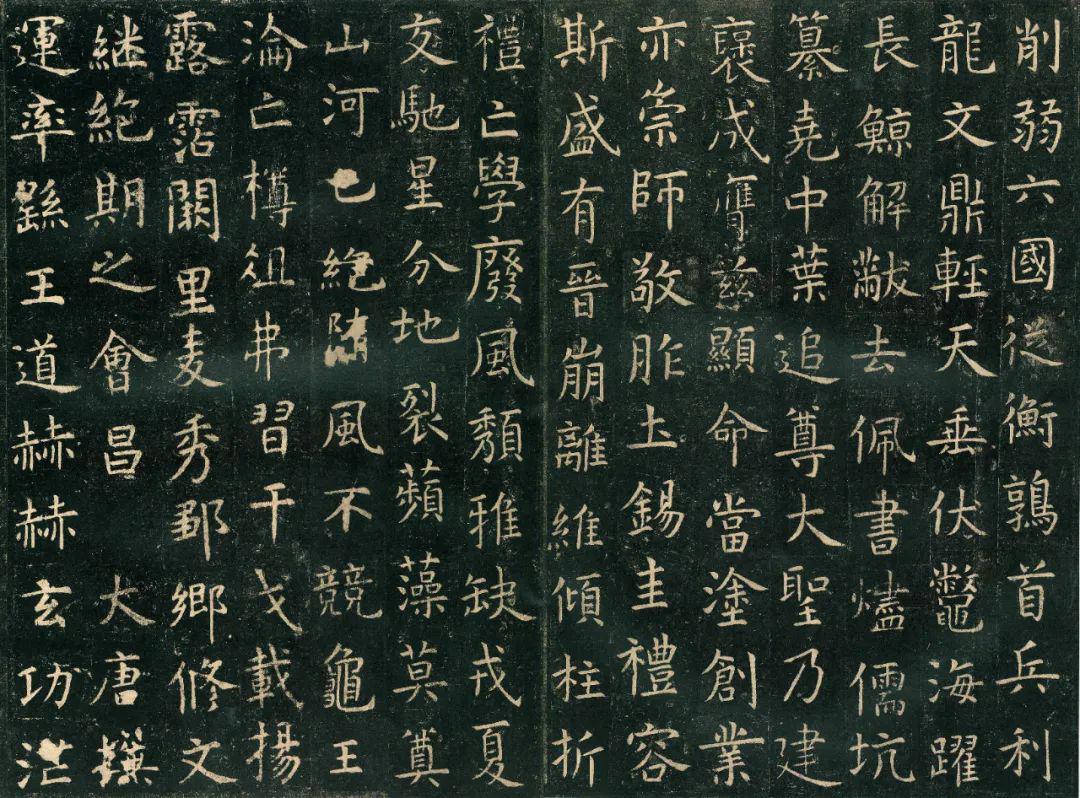 削弱六國從衡鶉首兵利
龍文鼎輕天垂伏鼈海躍
長鯨解黻去佩書燼儒坑
纂堯中葉追尊大聖乃建
襃成膺茲顯命當塗創業
亦崇師敬胙土錫圭禮容
斯盛有晉崩離維傾柱折
禮亡學廢風頹雅缺戎夏
交馳星分地裂蘋藻莫奠
山河已絕隋風不競龜玉
淪亡樽俎弗習干戈載揚
露霑闕里麦秀鄒鄉修文
継絕期之會昌 大唐撰
運率繇王道赫赫玄功茫